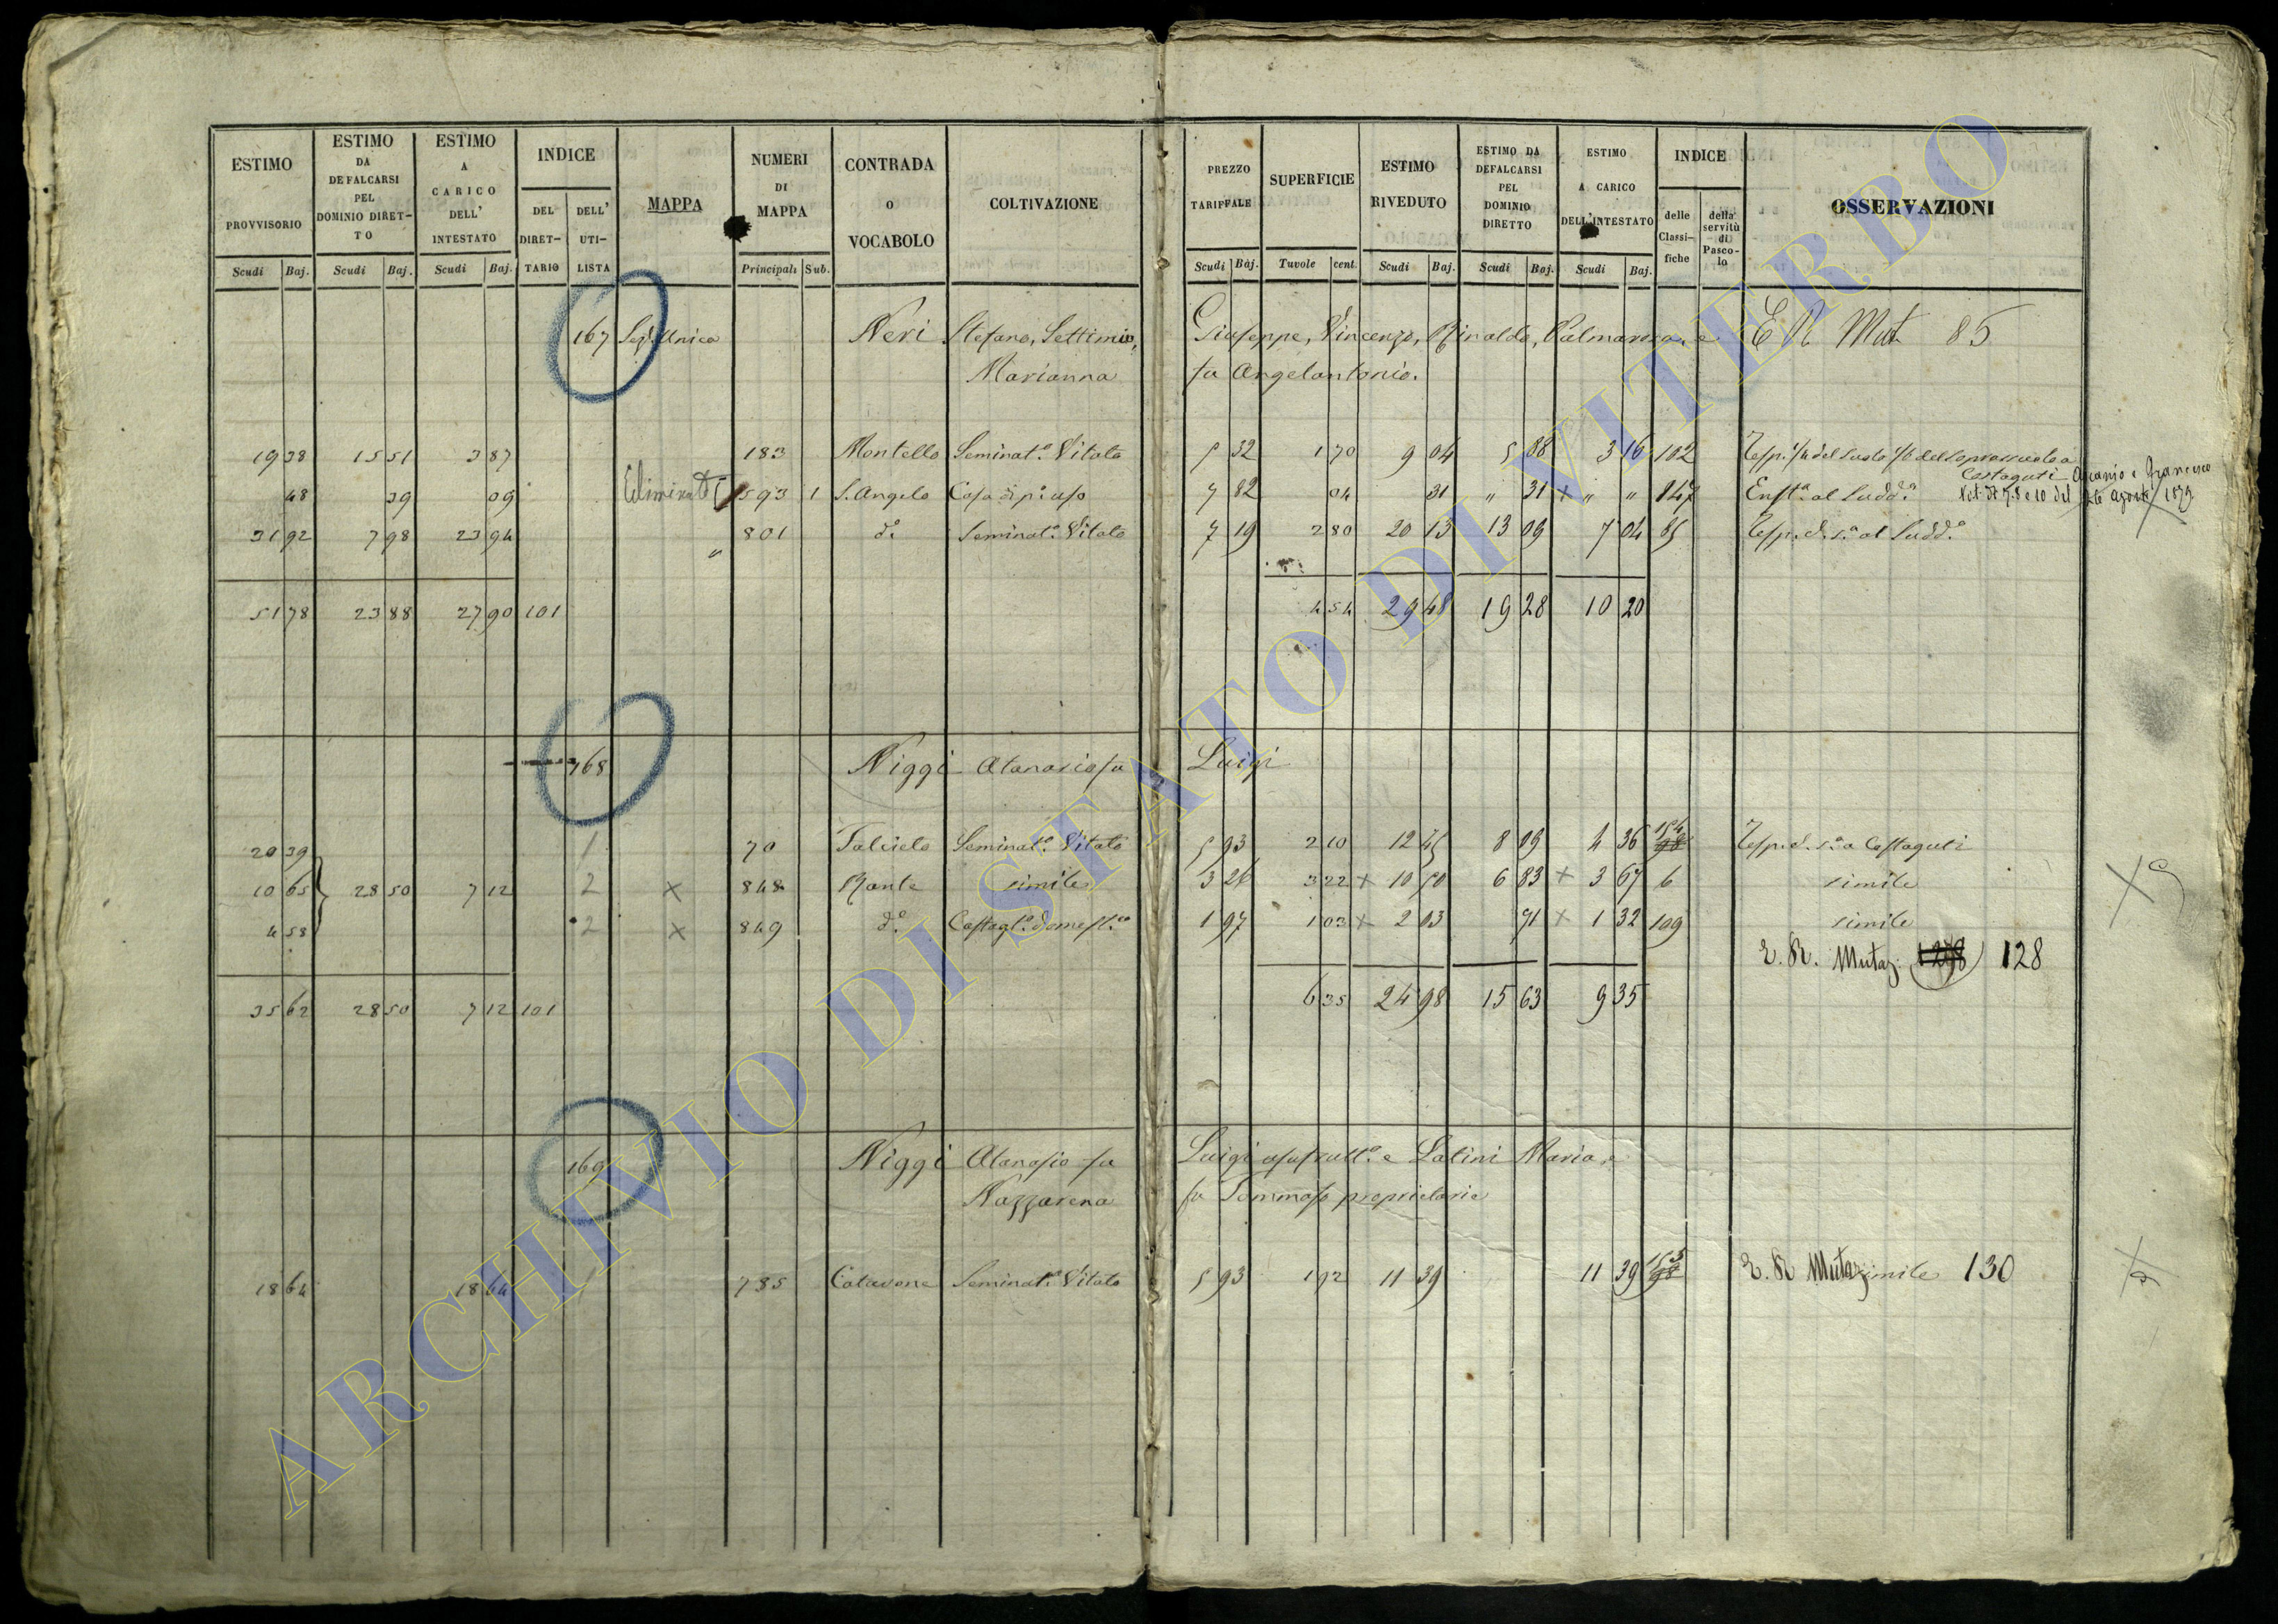 ESTIMO PROVVISORIO Scudi Baj.
ESTIMO DA DEFALCARSI PEL DOMINIO DIRETTO Scudi Baj.
ESTIMO A CARICO DELL' INTESTATO Scudi Baj.
INDICE DEL DIRETTARIO DELL' UTILISTA
MAPPA
NUMERI DI MAPPA Principali Sub.
CONTRADA O VOCABOLO
COLTIVAZIONE
PREZZO TARIFFALE Scudi Baj.
SUPERFICIE Tavole cent.
ESTIMO RIVEDUTO Scudi Baj.
ESTIMO DA DEFALCARSI PEL DOMINIO DIRETTO Scudi Baj.
ESTIMO A CARICO DELL'INTESTATO Scudi Baj.
INDICE delle Classifiche della servitù di Pascolo
OSSERVAZIONI
167 Sez. Unica Neri Stefano, Settimio, Giuseppe, Vincenzo, Rinaldo, Palmarosa, e Mut 85
Marianna fu Angelantonio.
19 38 15 51 3 87 183 Montello Seminat.o Vitato 5 32 1 70 9 04 5 88 3 16 102
Costaguti Ascanio e Francesco
48 39 09 Eliminato 593 1 S. Angelo Casa di p.o uso 7 82 04 31 " 31 x " " 847 Enft.a al Sudd.o 26 agosto 1879
31 92 7 98 23 94 " 801 d.o Seminat.o Vitato 7 19 2 80 20 13 13 09 7 04 85 Resp. d. s.a al Sudd.o
51 78 23 88 27 90 101 4 54 29 48 19 28 10 20
168 Niggi Atanasio fu Luigi
20 39 1 70 Seminat.o Vitato 5 93 2 10 12 45 8 09 4 36 154 98 Resp. d. s.a a Costaguti
10 65 28 50 7 12 2 x 848 Ronte simile 3 26 3 22 x 10 50 6 83 x 3 67 6 simile
4 58 2 x 849 d.o Castag.to domest.co 1 97 1 03 x 2 03 71 x 1 32 109 simile
V. R. Mutaz. 128
35 62 28 50 7 12 101 6 35 24 98 15 63 9 35
169 Niggi Atanasio fu Luigi usufrutt.o e Latini Maria, e
Nazzarena fu Tommaso proprietarie
18 64 18 64 735 Catavone Seminat.o Vitato 5 93 1 92 11 39 11 39 153 98 V. R. Mutaz simile 130
ARCHIVIO DI STATO DI VITERBO